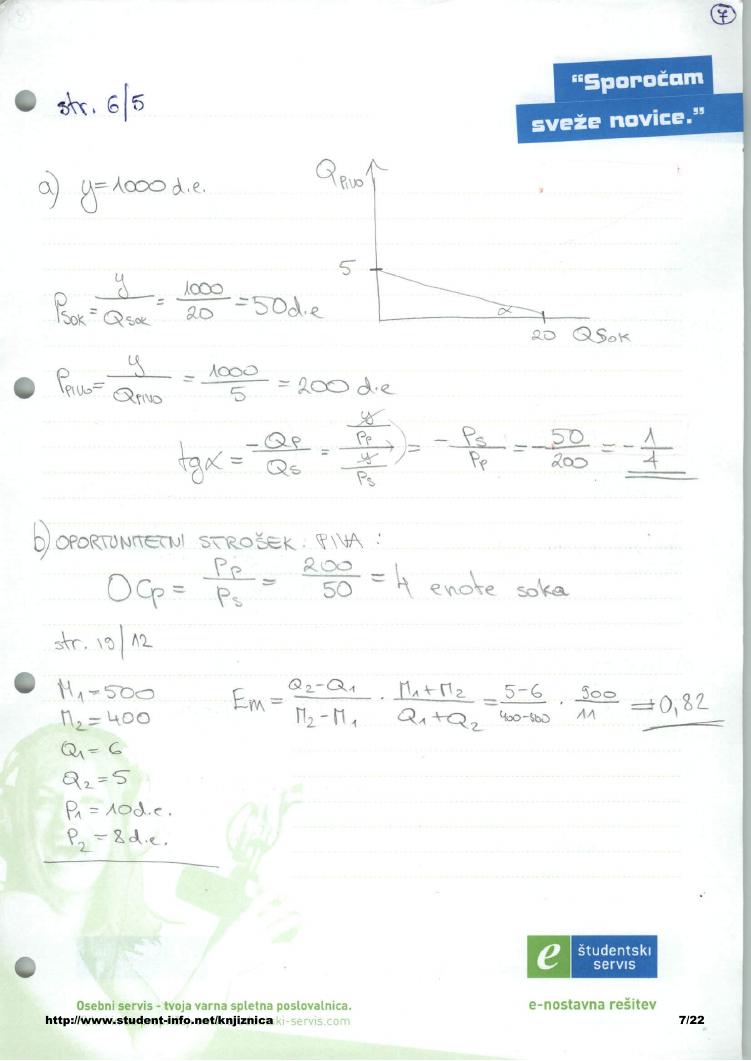 7
"Sporočam
sveže novice."
str. 6/5
a) y=1000 d.e.
QPIVO
5
α
20 QSOK
PSOK = y/QSOK = 1000/20 = 50 d.e
PPIVO = y/QPIVO = 1000/5 = 200 d.e
tgα = -QP/QS = (y/PP)/(y/PS) = -PS/PP = -50/200 = -1/4
b) OPORTUNITETNI STROŠEK. PIVA :
OCP = PP/PS = 200/50 = 4 enote soka
str. 19/12
M1=500
M2=400
Q1=6
Q2=5
P1=10d.e.
P2=8d.e.
Em = Q2-Q1/M2-M1 · M1+M2/Q1+Q2 = 5-6/400-500 · 900/11 = 0,82
e študentski
servis
Osebni servis - tvoja varna spletna poslovalnica.
e-nostavna rešitev
http://www.student-info.net/knjiznica
ki-servis.com
7/22